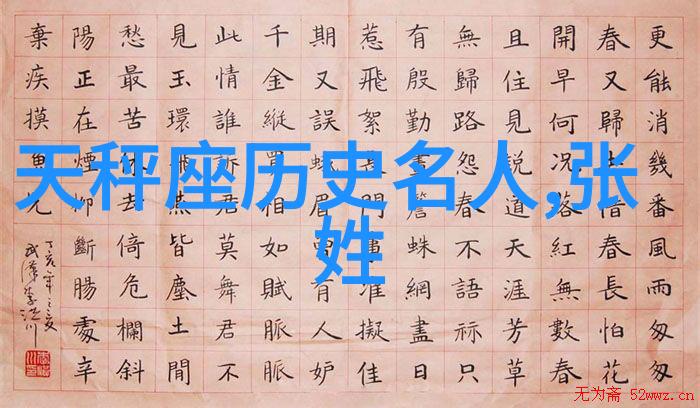 天秤座历史名人,张
姓
更能消幾番風雨匆匆
春又歸去惜春長怕花
開早何況落紅無數春
且住見説道天涯芳草
無歸路怨春不語祘只
有殷勤畫簷蛛網盡日
惹飛絮長門事准擬佳
期又誤蛾眉曾有人妒
千金縱買相如賦脈脈
此情誰訴君莫舞君不
見玉環飛燕皆塵土閒
愁最苦休去倚危欄斜
陽正在煙柳斷腸處辛
棄疾摸魚兒
无为斋 52wwz.cn